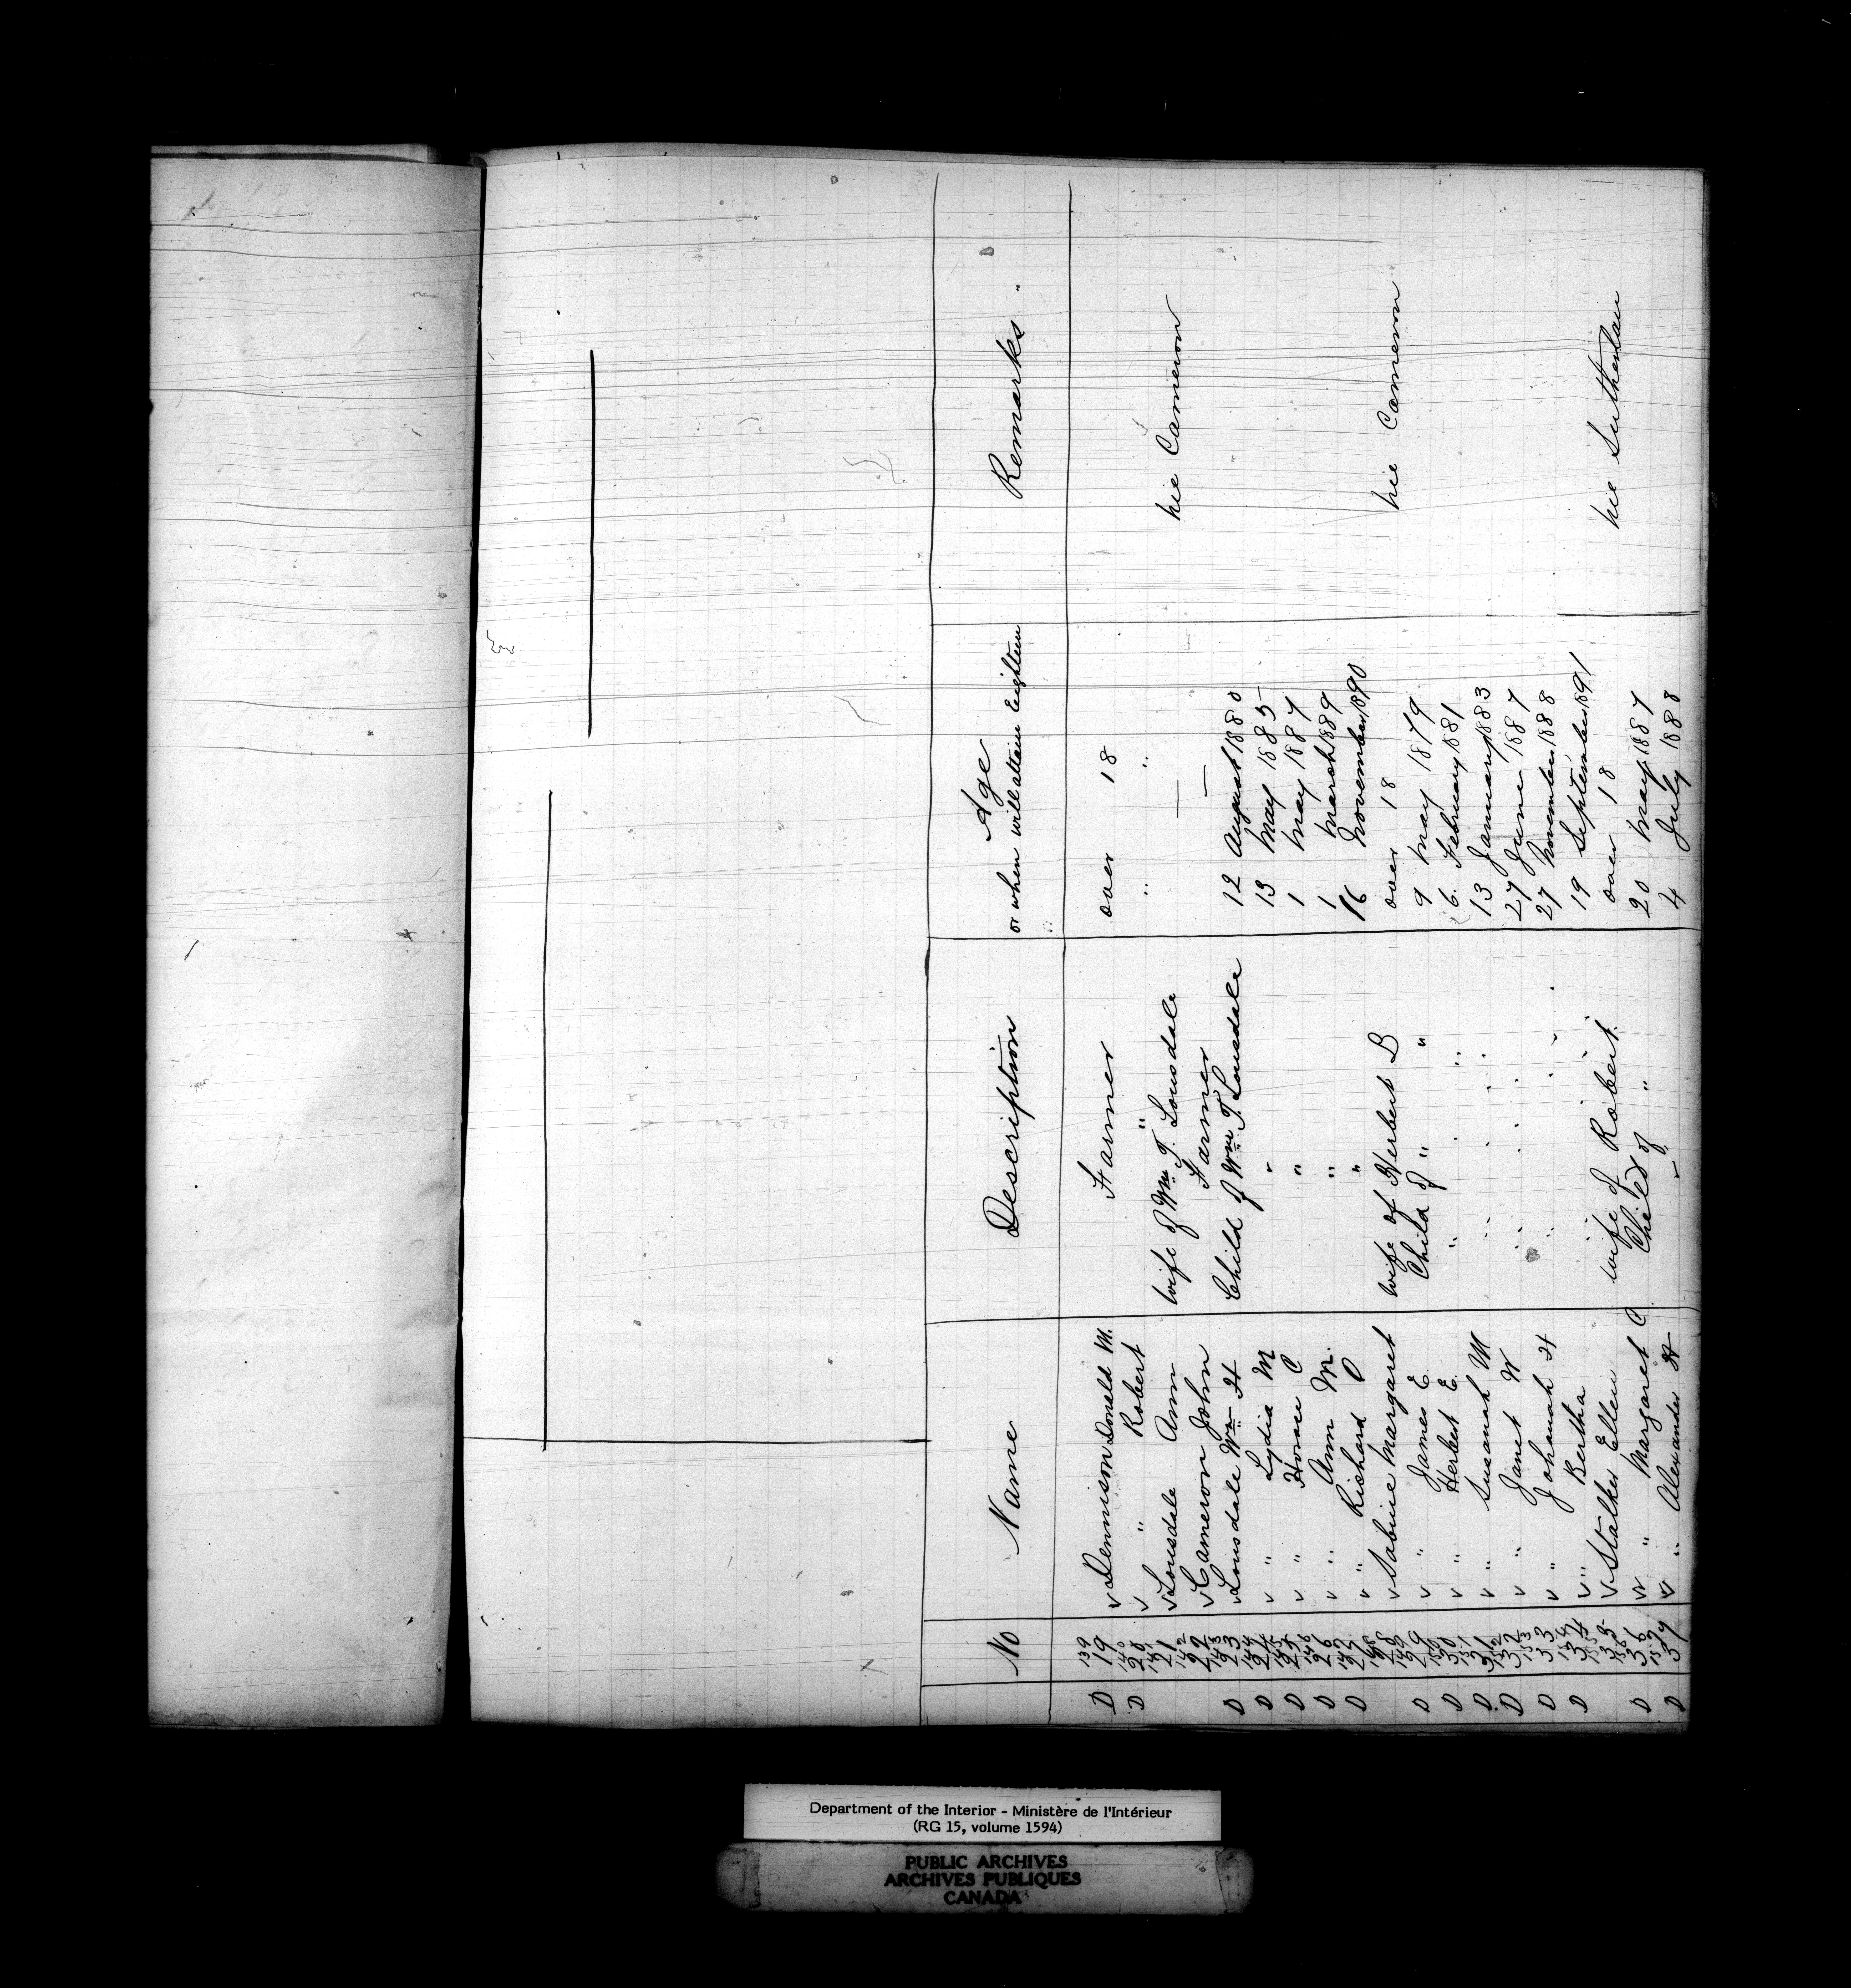 No Name Description Age or when will attain Eighteen Remarks
D 139 19 v Dennison Donald M. Farmer over 18
D 140 20 v " Robert " " "
141 21 v Lonsdale Ann wife of Wm T. Lonsdale — nie Cameron
142 22 v Cameron John Farmer —
D 143 23 v Lonsdale Wm H Child of Wm T. Lonsdale 12 August 1880
D 144 24 v " Lydia M " 13 May 1885
D 145 25 v " Horace C " 1 May 1887
D 146 26 v " Ann M. " 1 March 1889
D 147 27 v " Richard O " 16 November 1890
148 28 v Sabine Margaret wife of Herbert B over 18 nie Cameron
D 149 29 v " James E. Child of " " 9 May 1879
D 150 30 v " Herbert E. " " " 6 February 1881
D 151 31 v " Susanah M " " " 13 January 1883
D 152 32 v " Janet W " " " 27 June 1887
D 153 33 v " Johanah H " " " 27 November 1888
D 154 34 v " Bertha 19 September 1891
155 35 v Stalker Ellen wife of Robert over 18 nie Sutherlan
D 156 36 v " Margaret C Child of " 20 May 1887
D 157 37 v " Alexander H " 4 July 1888
Department of the Interior - Ministère de l'Intérieur
(RG 15, volume 1594)
PUBLIC ARCHIVES
ARCHIVES PUBLIQUES
CANADA